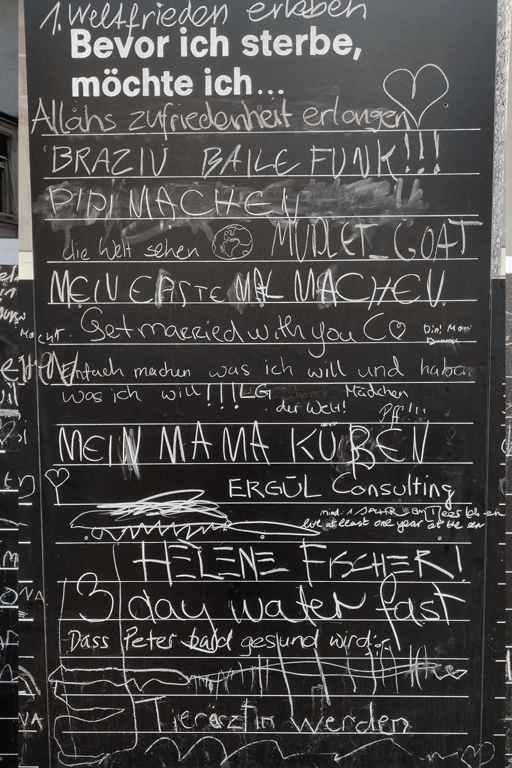 1. Weltfrieden erleben
Bevor ich sterbe,
möchte ich...
Allāhs zufriedenheit erlangen
BRAZIU BAILE FUNK!!!
PIPI MACHEN
die Welt sehen MUDLET_GOAT
MEIN ERSTE MAL MACHEN
Get married with you C♡
Einfach machen was ich will und haben
was ich will!!! LG
Mädchen
der Welt! Pff!!!
MEIN MAMA KÜßEN
ERGÜL Consulting
mind. 1 JAHR
live at least one year at the sea
HELENE FISCHER!
3 day water fast
Dass Peter bald gesund wird
Tierärztin werden